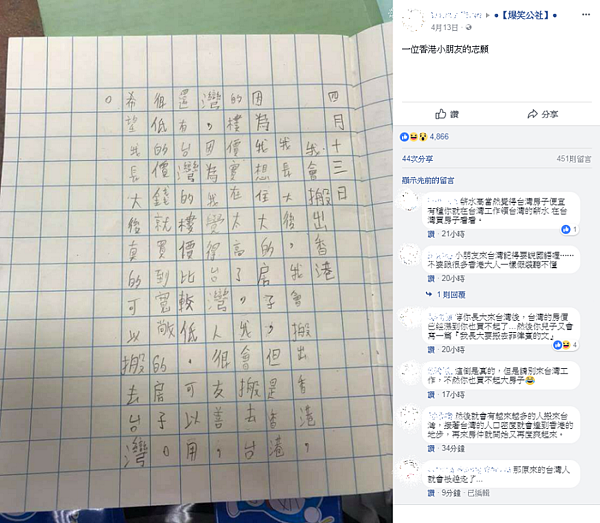 四月十三日
我會搬出香港
我長大後,我會搬出香港。
因為我想住大的房子,但是香港
的樓價實在太高了。我會搬去台
灣,因為我覺得台灣人很友善,
還有台灣的樓價比較低,可以用
但低的價錢就買到寬敞的房子。
希望我長大後真的可以搬去台灣
。
●【爆笑公社】●
4月13日
一位香港小朋友的志願
讚 分享
4,866
44次分享 451則留言
顯示先前的留言
薪水要當然覺得台灣房子便宜
有種你就在台灣工作領台灣的薪水 在台
灣買房子看看。
讚 · 21小時
1
小朋友來台灣記得要說國語喔⋯⋯
不要跟很多香港大人一樣假裝聽不懂
讚 · 20小時
1 則回覆
等你長大來台灣後,台灣的房價
已經漲到你也買不起了...然後你兒子又會
寫一篇「我長大要搬去菲律賓的文」
讚 · 21小時
4
這倒是真的,但是請別來台灣工
作,不然你也買不起大房子
讚 · 17小時
然後就會有越來越多的人搬來台
灣,接著台灣的人口密度就會達到香港的
地步,再來房仲就開始又再度爽起來。
讚 · 34分鐘
那原來的台灣人
就會被趕走了...
讚 · 9分鐘 · 已編輯